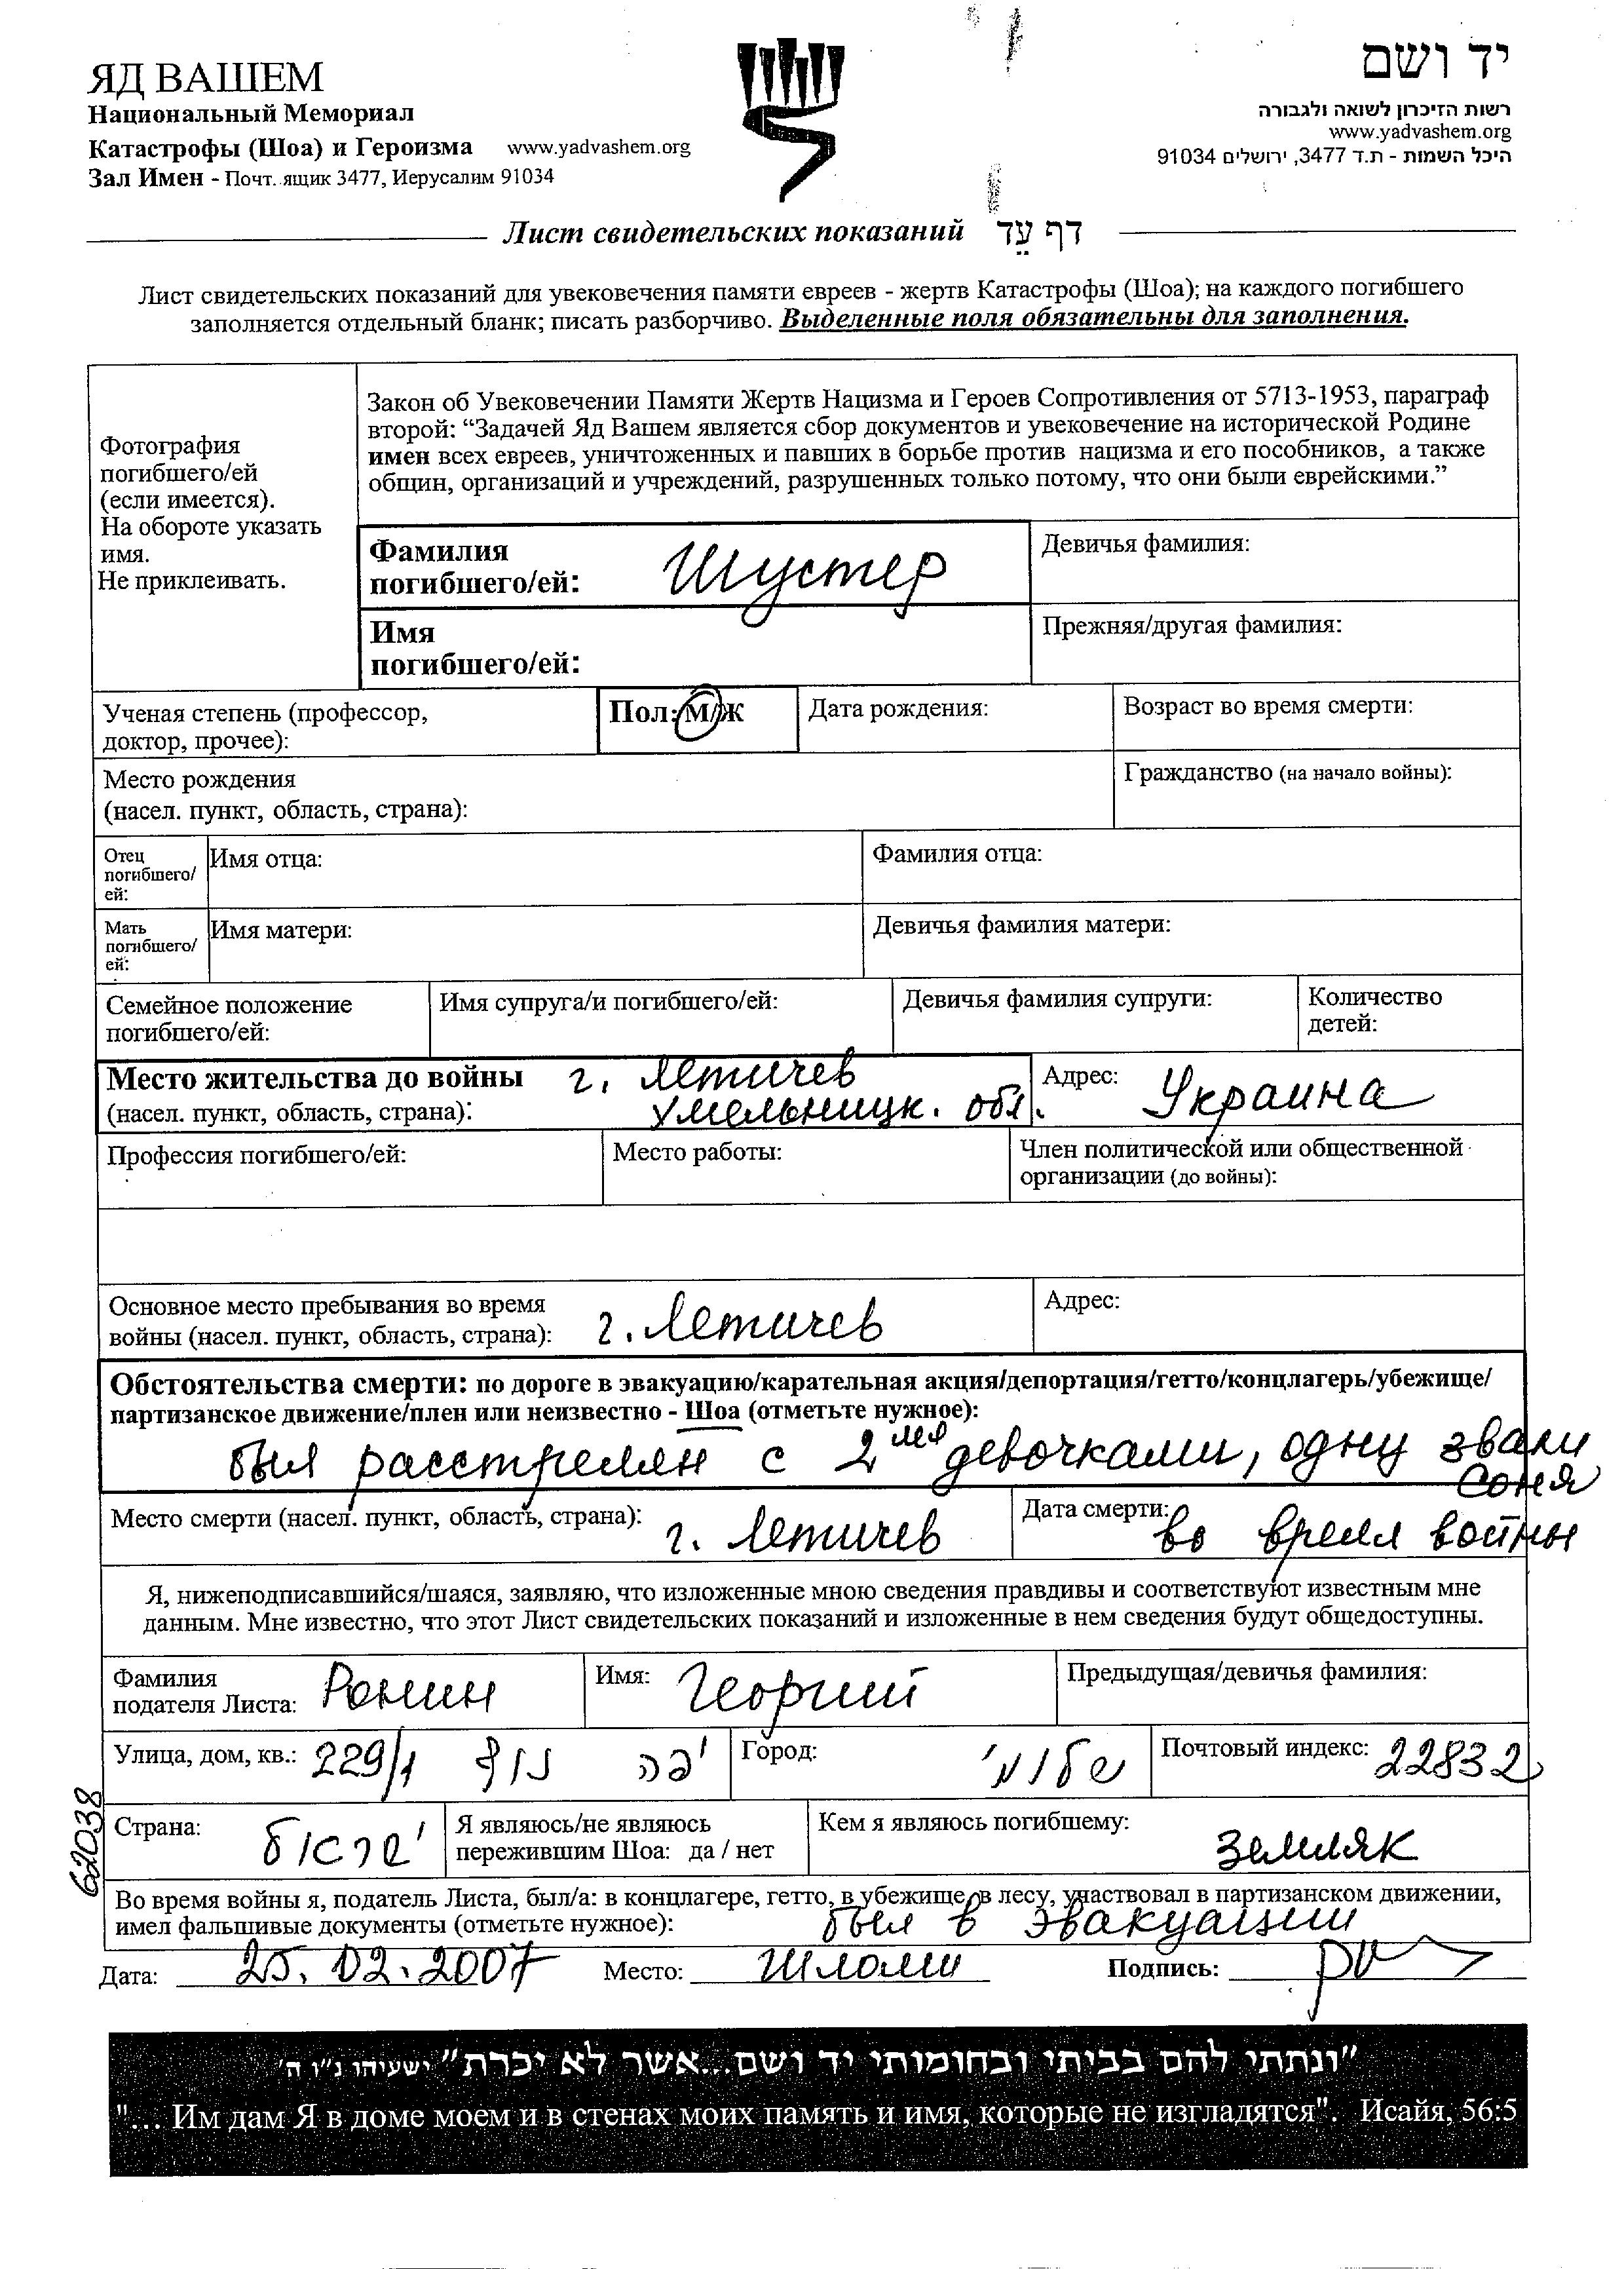 ЯД ВАШЕМ
Национальный Мемориал
Катастрофы (Шоа) и Героизма www.yadvashem.org
Зал Имен - Почт. ящик 3477, Иерусалим 91034
יד ושם
רשות הזיכרון לשואה ולגבורה
www.yadvashem.org
היכל השמות - ת.ד 3477, ירושלים 91034
Лист свидетельских показаний דף עֵד
Лист свидетельских показаний для увековечения памяти евреев - жертв Катастрофы (Шоа); на каждого погибшего
заполняется отдельный бланк; писать разборчиво. Выделенные поля обязательны для заполнения.
Фотография
погибшего/ей
(если имеется).
На обороте указать
имя.
Не приклеивать.
Закон об Увековечении Памяти Жертв Нацизма и Героев Сопротивления от 5713-1953, параграф
второй: “Задачей Яд Вашем является сбор документов и увековечение на исторической Родине
имен всех евреев, уничтоженных и павших в борьбе против нацизма и его пособников, а также
общин, организаций и учреждений, разрушенных только потому, что они были еврейскими.”
Фамилия
погибшего/ей: Шустер
Девичья фамилия:
Имя
погибшего/ей:
Прежняя/другая фамилия:
Ученая степень (профессор,
доктор, прочее):
Пол: М/Ж
Дата рождения:
Возраст во время смерти:
Место рождения
(насел. пункт, область, страна):
Гражданство (на начало войны):
Отец
погибшего/
ей:
Имя отца:
Фамилия отца:
Мать
погибшего/
ей:
Имя матери:
Девичья фамилия матери:
Семейное положение
погибшего/ей:
Имя супруга/и погибшего/ей:
Девичья фамилия супруги:
Количество
детей:
Место жительства до войны г. Летичев
(насел. пункт, область, страна): Умельницк. обл.
Адрес: Украина
Профессия погибшего/ей:
Место работы:
Член политической или общественной
организации (до войны):
Основное место пребывания во время
войны (насел. пункт, область, страна): г. Летичев
Адрес:
Обстоятельства смерти: по дороге в эвакуацию/карательная акция/депортация/гетто/концлагерь/убежище/
партизанское движение/плен или неизвестно - Шоа (отметьте нужное):
был расстрелян с 2мя девочками, одну звали
Соня
Место смерти (насел. пункт, область, страна): г. Летичев
Дата смерти: во время войны
Я, нижеподписавшийся/шаяся, заявляю, что изложенные мною сведения правдивы и соответствуют известным мне
данным. Мне известно, что этот Лист свидетельских показаний и изложенные в нем сведения будут общедоступны.
Фамилия
подателя Листа: Ронин
Имя: Георгий
Предыдущая/девичья фамилия:
Улица, дом, кв.: 229/1 נוף יפה
Город: שלומי
Почтовый индекс: 22832
62038
Страна:
Я являюсь/не являюсь
пережившим Шоа: да / нет
Кем я являюсь погибшему:
земляк
Во время войны я, податель Листа, был/а: в концлагере, гетто, в убежище, в лесу, участвовал в партизанском движении,
имел фальшивые документы (отметьте нужное): был в эвакуации
Дата: 25.02.2007 Место: Шломи Подпись:
"ונתתי להם בביתי ובחומותי יד ושם...אשר לא יכרת" ישעיהו נ"ו ה'
"... Им дам Я в доме моем и в стенах моих память и имя, которые не изгладятся". Исайя, 56:5